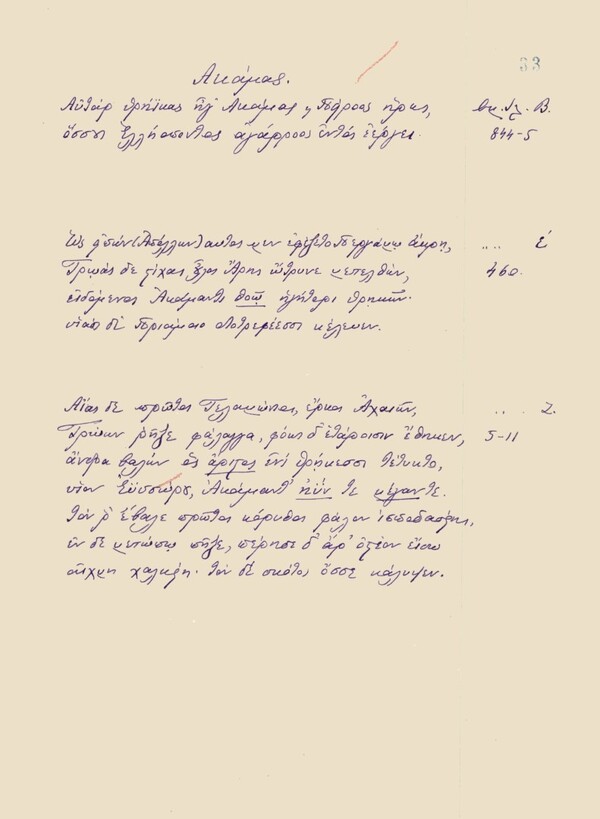 33
Ακάμας.
Αὐτὰρ Θρήϊκας ἦγ' Ακάμας καὶ Πείροος ἥρως, Ομ. Ιλ. Β.
ὅσσους Ἑλλήσποντος ἀγάρροος ἐντὸς ἐέργει. 844-5
Ὣς εἰπὼν (Ἀπόλλων) αυτὸς μεν εφέζετο Περγάμῳ ἄκρῃ, .. .. Ε
Τρῳάς δε στίχας οὖλος Ἄρης ὤτρυνε μετελθών, 460.
εἰδόμενος Ἀκάμαντι θοῷ ἡγήτορι Θρῃκῶν·
υἱάσι δὲ Πριάμοιο διοτρεφέεσσι κέλευεν.
Αἴας δε πρῶτος Τελαμώνιος, ἕρκος Ἀχαιῶν, .. . Ζ.
Τρώων ῥῆξε φάλαγγα, φόως δ' ἑτάροισιν ἔθηκεν, 5-11
ἄνδρα βαλὼν ὃς ἄριστος ἐνὶ Θρήκεσσι τέτυκτο,
υἱὸν Ἐϋσσώρου, Ἀκάμαντ' ἠΰν τε μέγαν τε.
τόν ῥ' ἔβαλε πρῶτος κόρυθος φάλον ἱπποδασείης,
ἐν δε μετώπῳ πῆξε, πέρησε δ' ἄρ' ὀστέον εἴσω
αἰχμὴ χαλκείη· τὸν δὲ σκότος ὄσσε κάλυψεν.